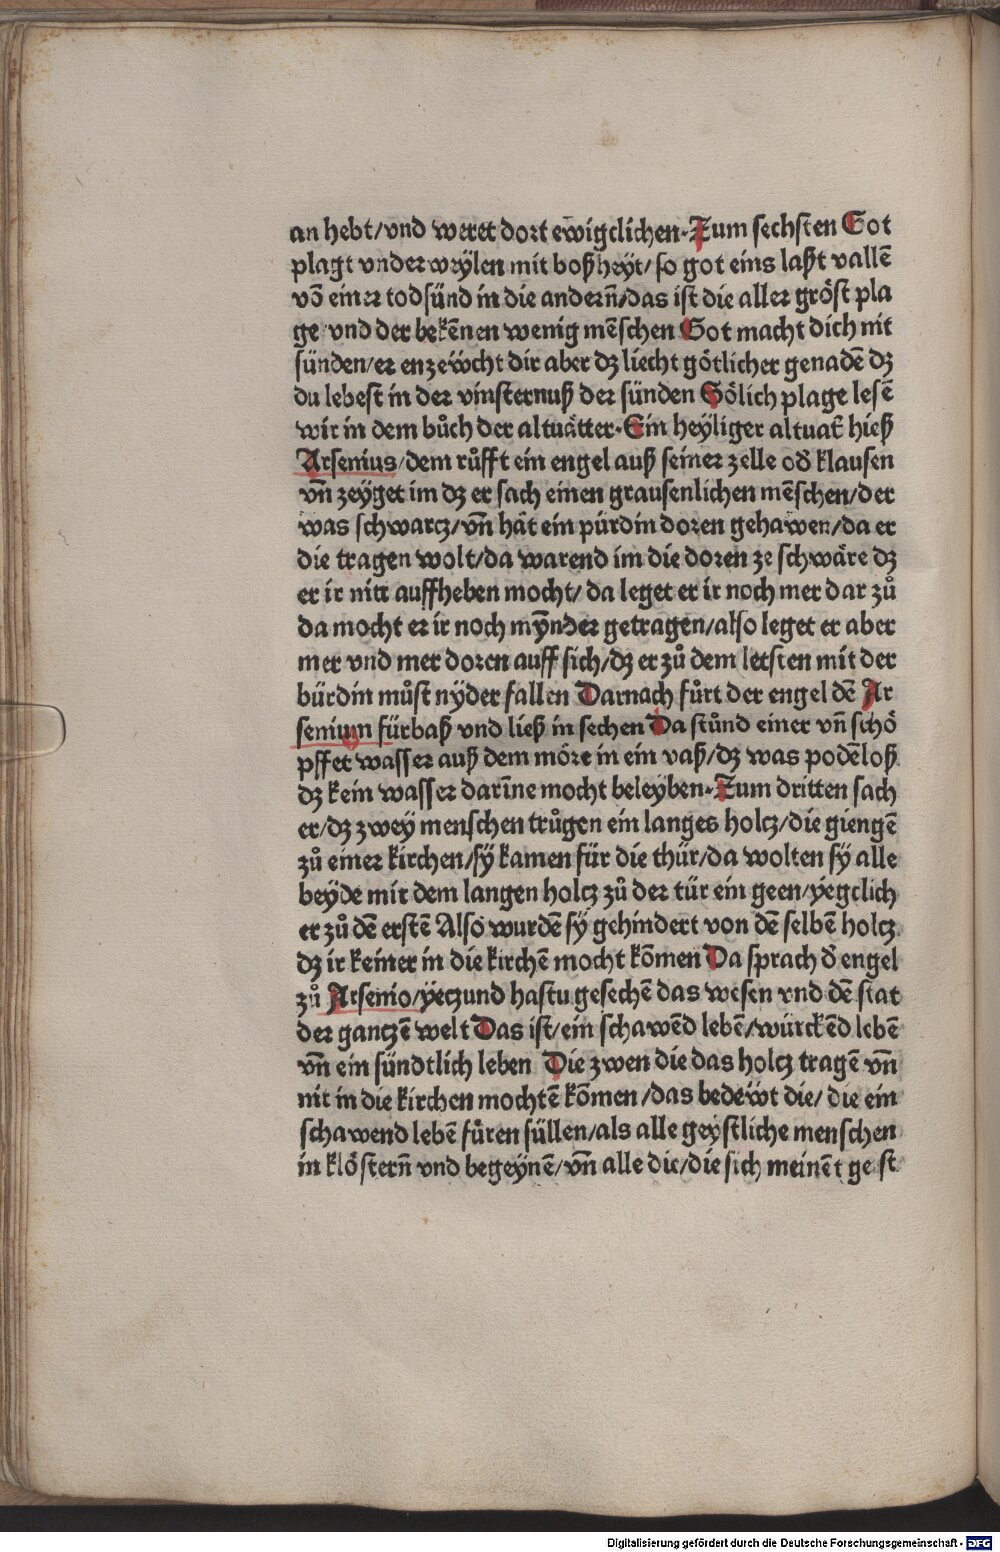 an hebt/vnd weret dort ewigclichen. Zum sechsten Got
plagt vnderweylen mit boßheyt/so got eins laßt vallē
vō einer todsünd in die andern̄/das ist die aller gröst pla
ge vnd der bekēnen wenig mēschen Got macht dich nit
sünden/er enzewcht dir aber dʒ liecht götlicher genadē dʒ
du lebest in der vinsternuß der sünden Sölich plage lesē
wir in dem bůch der altuätter. Ein heyliger altuat̄ hieß
Arsenius/dem růfft ein engel auß seiner zelle od̄ klausen
vn̄ zeyget im dʒ er sach einen grausenlichen mēschen/der
was schwarcz/vn̄ hät ein pürdin doren gehawen/da er
die tragen wolt/da warend im die doren ze schwäre dʒ
er ir nitt auffheben mocht/da leget er ir noch mer dar zů
da mocht er ir noch mynder getragen/also leget er aber
mer vnd mer doren auff sich/dʒ er zů dem letsten mit der
bürdin můst nyder fallen Darnach fůrt der engel dē Ar
senium fürbaß vnd ließ in sechen Da stůnd einer vn̄ schö
pffet wasser auß dem möre in ein vaß/dʒ was podēloß
dʒ kein wasser darīne mocht beleyben. Zum dritten sach
er/dʒ zwey menschen trůgen ein langes holcz/die giengē
zů einer kirchen/sy kamen für die thür/da wolten sy alle
beyde mit dem langen holcz zů der tür ein geen/yegclich
er zů dē erstē Also wurdē sy gehindert von dē selbē holcz
dʒ ir keiner in die kirchē mocht kōmen Da sprach d̄ engel
zů Arsenio/yeczund hastu gesechē das wesen vnd dē stat
der ganczē welt Das ist/ein schawēd lebē/würckēd lebē
vn̄ ein sündtlich leben Die zwen die das holcz tragē vn̄
nit in die kirchen mochtē kōmen/das bedewt die/die ein
schawend lebē fůren süllen/als alle geystliche menschen
in klöstern̄ vnd begeynē/vn̄ alle die/die sich meinēt gest
Digitalisierung gefördert durch die Deutsche Forschungsgemeinschaft - DFG